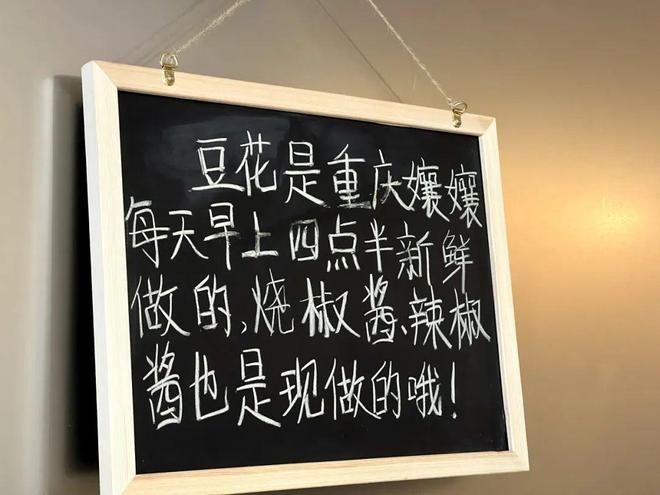 豆花是重庆孃孃
每天早上四点半新鲜
做的,烧椒酱、辣椒
酱也是现做的哦!